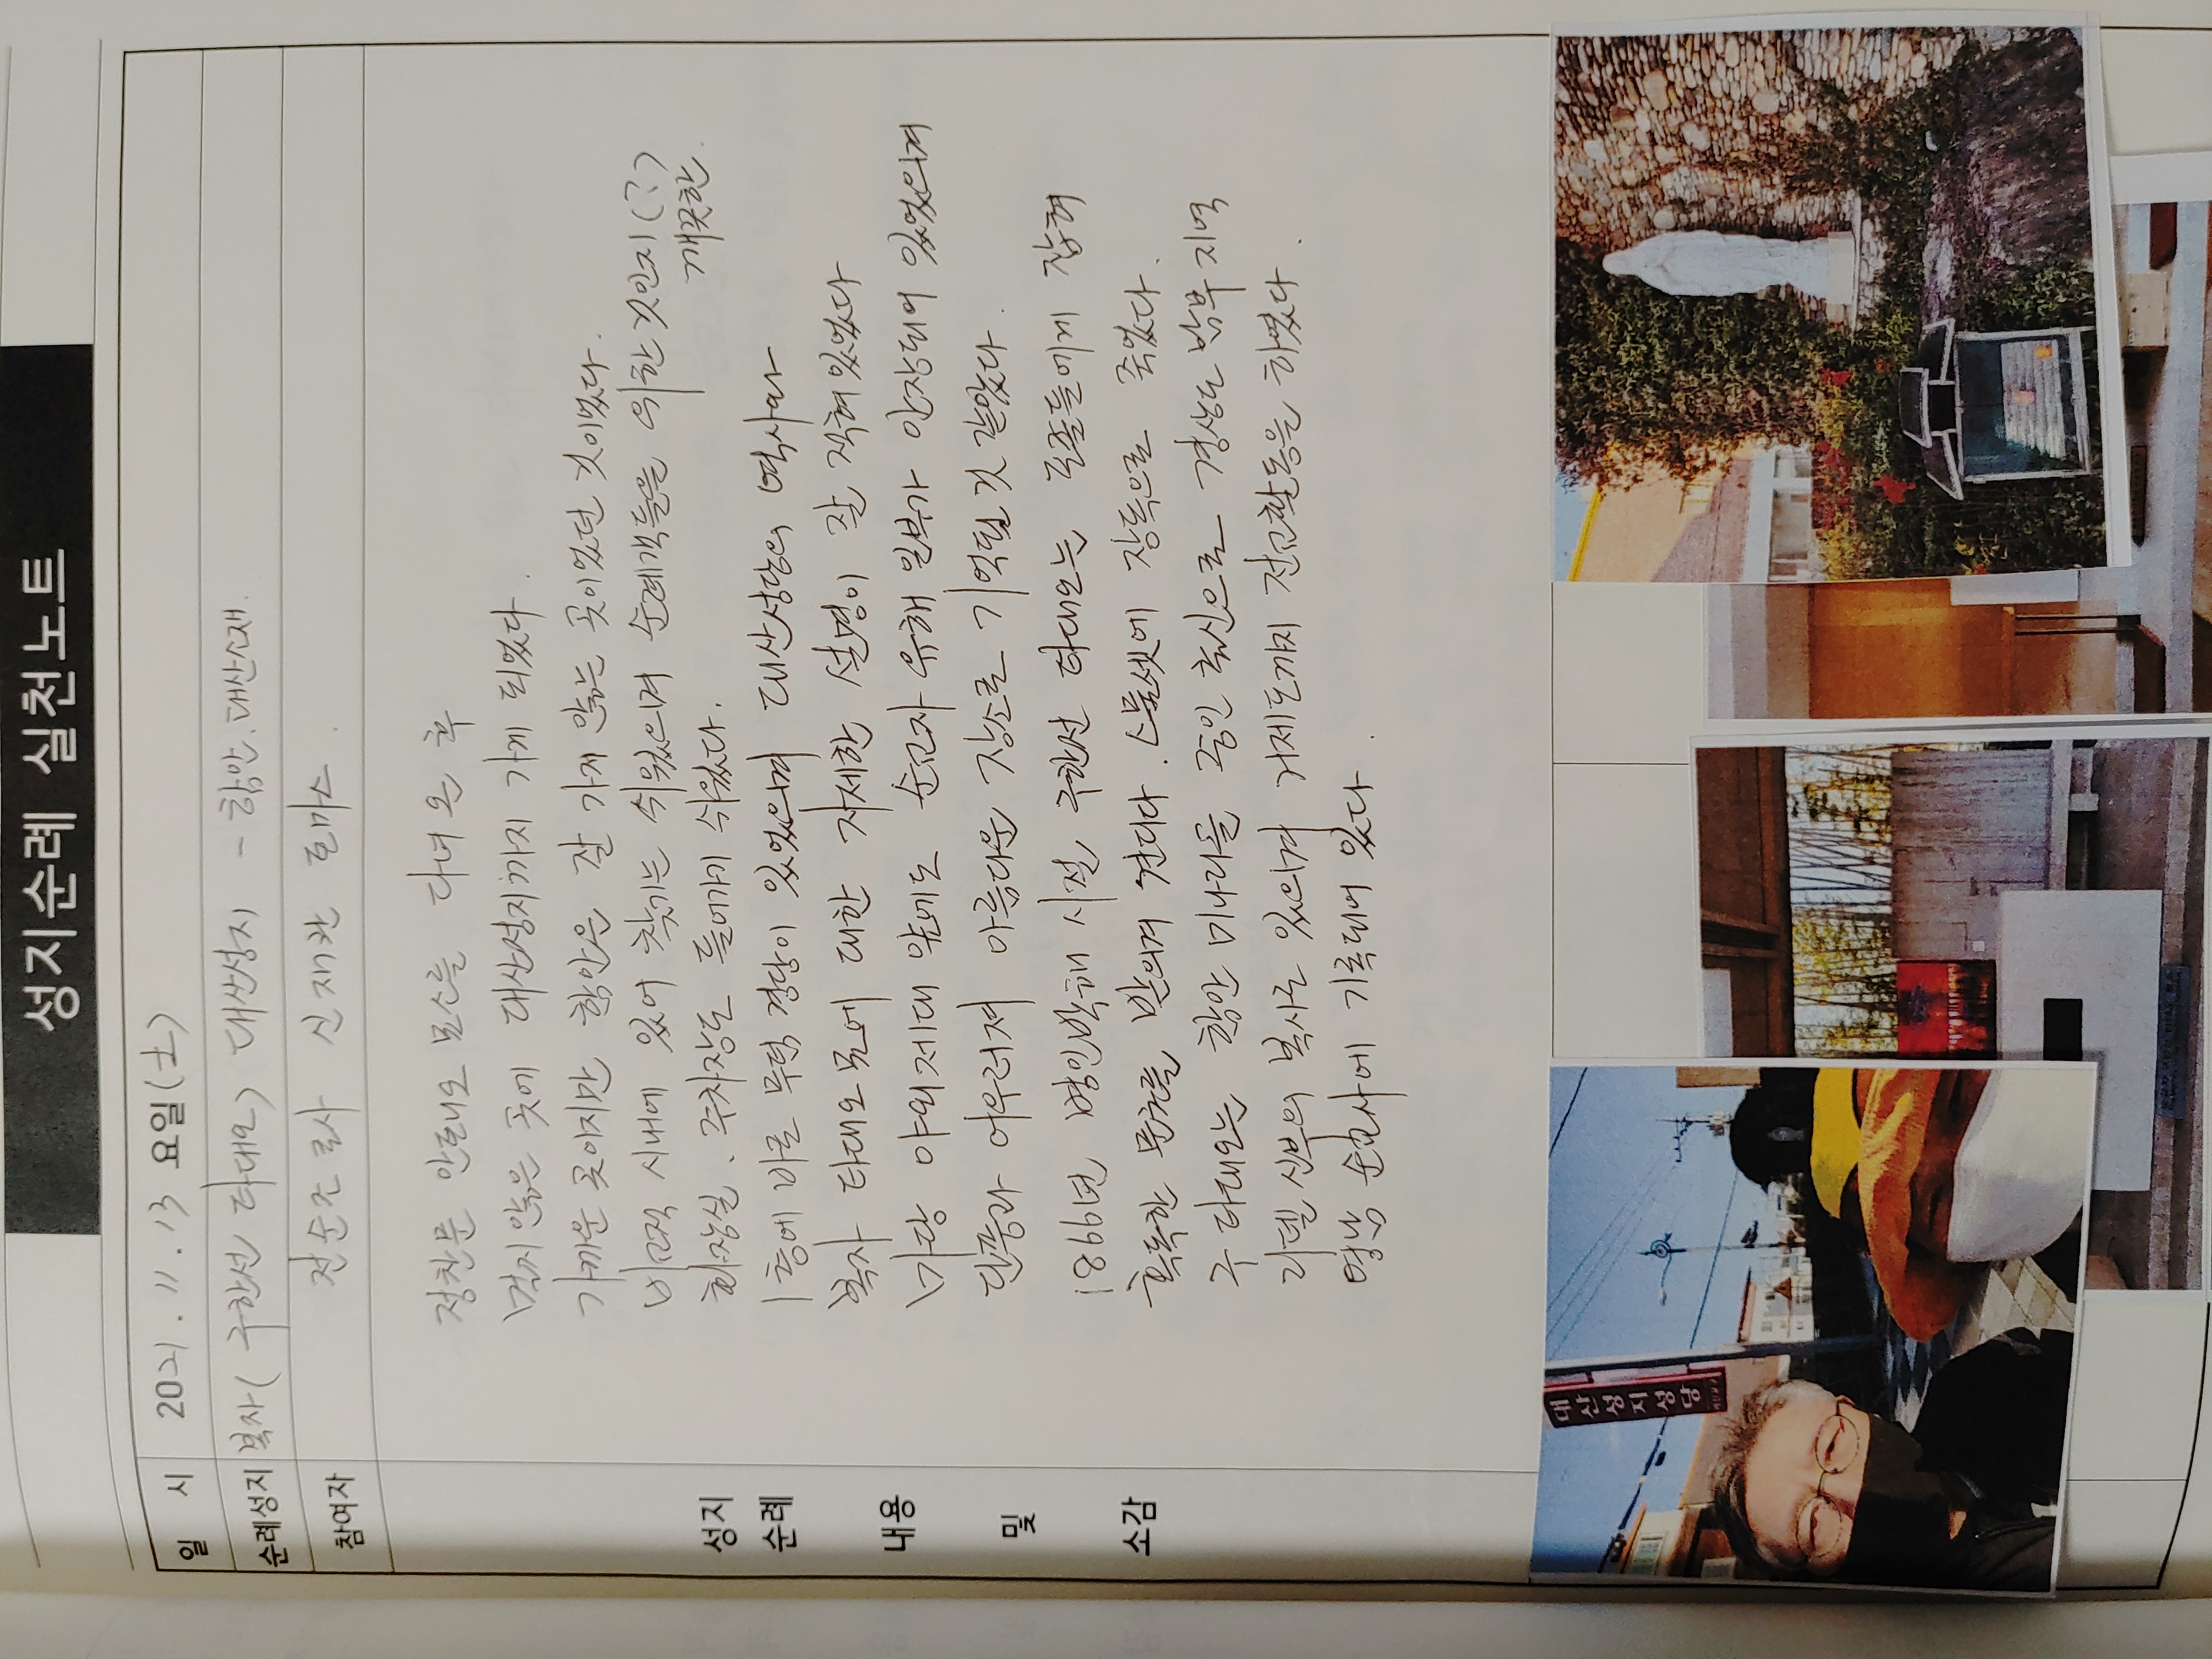 성지순례 실천노트
일 시 2021. 11. 13 요일(토)
순례성지 복자(구한선 타대오) 대산성지 - 함안.대산소재.
참여자 전순조 로사 신재관 토마스.
성지
순례
내용
및
소감
정찬문 안토니오 묘소를 다녀 온 후
멀지않은 곳에 대산성지까지 가게 되었다.
가까운 곳이지만 함안은 잘 가게 않는 곳이었던 것이었다.
비교적 시내에 있어 찾기는 쉬웠으며 순례객들을 위한 것인지(?)
깨끗한
화장실. 주차장도 들어가기 쉬웠다.
1층에 바로 무덤 경당이 있었으며 대산성당의 역사와
복자 타대오 묘에 대한 자세한 설명이 잘 적혀있었다
마당 야외제대 앞에도 순교자 유해 일부가 안장되어 있었으며
단풍과 어우러져 아름다운 장소로 기억될 것 같았다.
1866년 병인박해 시절 구한선 타대오는 포졸들에게 잡혀
혹독한 문초를 받으며 견디다. 스물셋에 장독으로 죽었다.
구 타대오는 함안 미나리골 중인 출신으로 경상도 남부 지역
리델 신부의 복사로 있으며 거제도까지 전교활동을 하였다.
영남 순교사에 기록되어 있다.
대산성지성당